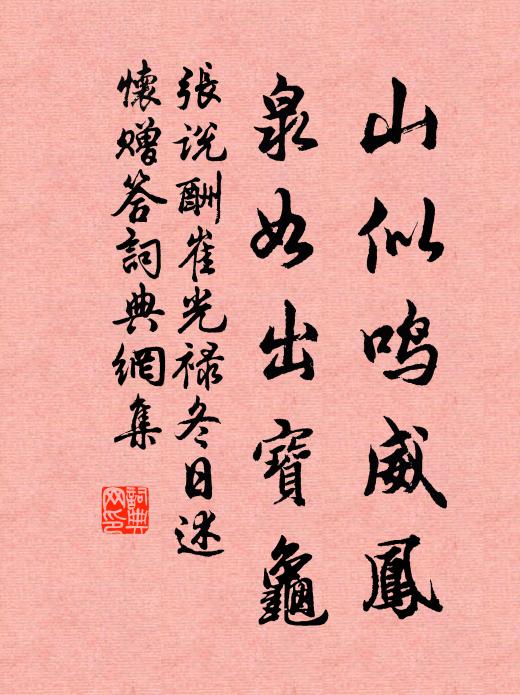 山似鸣威鳳
泉如出寶龜
張说酬崔光禄冬日述
懷赠答詞典網集
詞典
网印